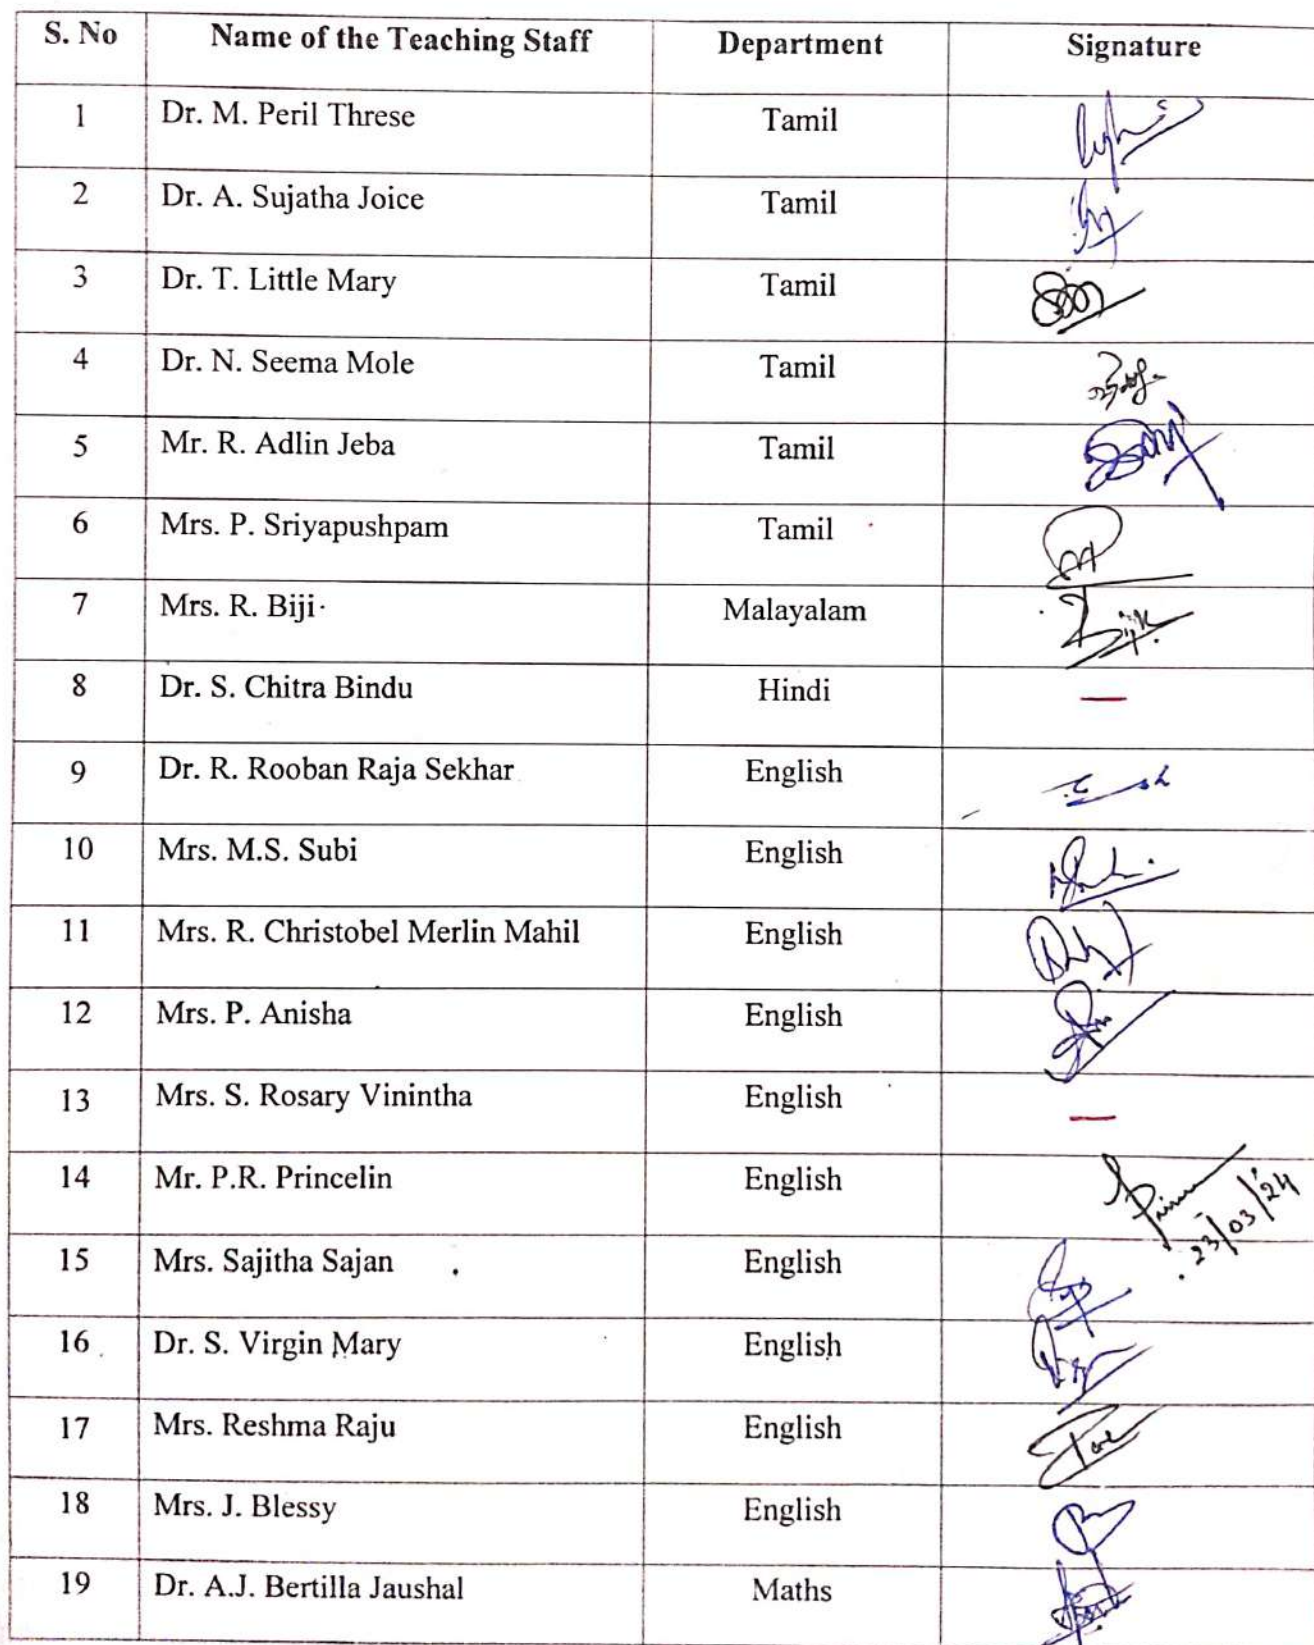 S. No Name of the Teaching Staff Department Signature
1 Dr. M. Peril Threse Tamil
2 Dr. A. Sujatha Joice Tamil
3 Dr. T. Little Mary Tamil
4 Dr. N. Seema Mole Tamil
5 Mr. R. Adlin Jeba Tamil
6 Mrs. P. Sriyapushpam Tamil
7 Mrs. R. Biji Malayalam
8 Dr. S. Chitra Bindu Hindi —
9 Dr. R. Rooban Raja Sekhar English
10 Mrs. M.S. Subi English
11 Mrs. R. Christobel Merlin Mahil English
12 Mrs. P. Anisha English
13 Mrs. S. Rosary Vinintha English —
14 Mr. P.R. Princelin English 23/03/24
15 Mrs. Sajitha Sajan English
16 Dr. S. Virgin Mary English
17 Mrs. Reshma Raju English
18 Mrs. J. Blessy English
19 Dr. A.J. Bertilla Jaushal Maths